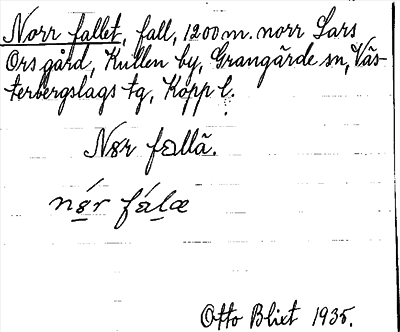 Norr fallet, fall, 1200 m. norr Lars
Ors gård, Kullen by, Grangärde sn, Väs-
terbergslags tg, Kopp l.
Nør fallä.
nǿr fálæ
Otto Blixt 1935.